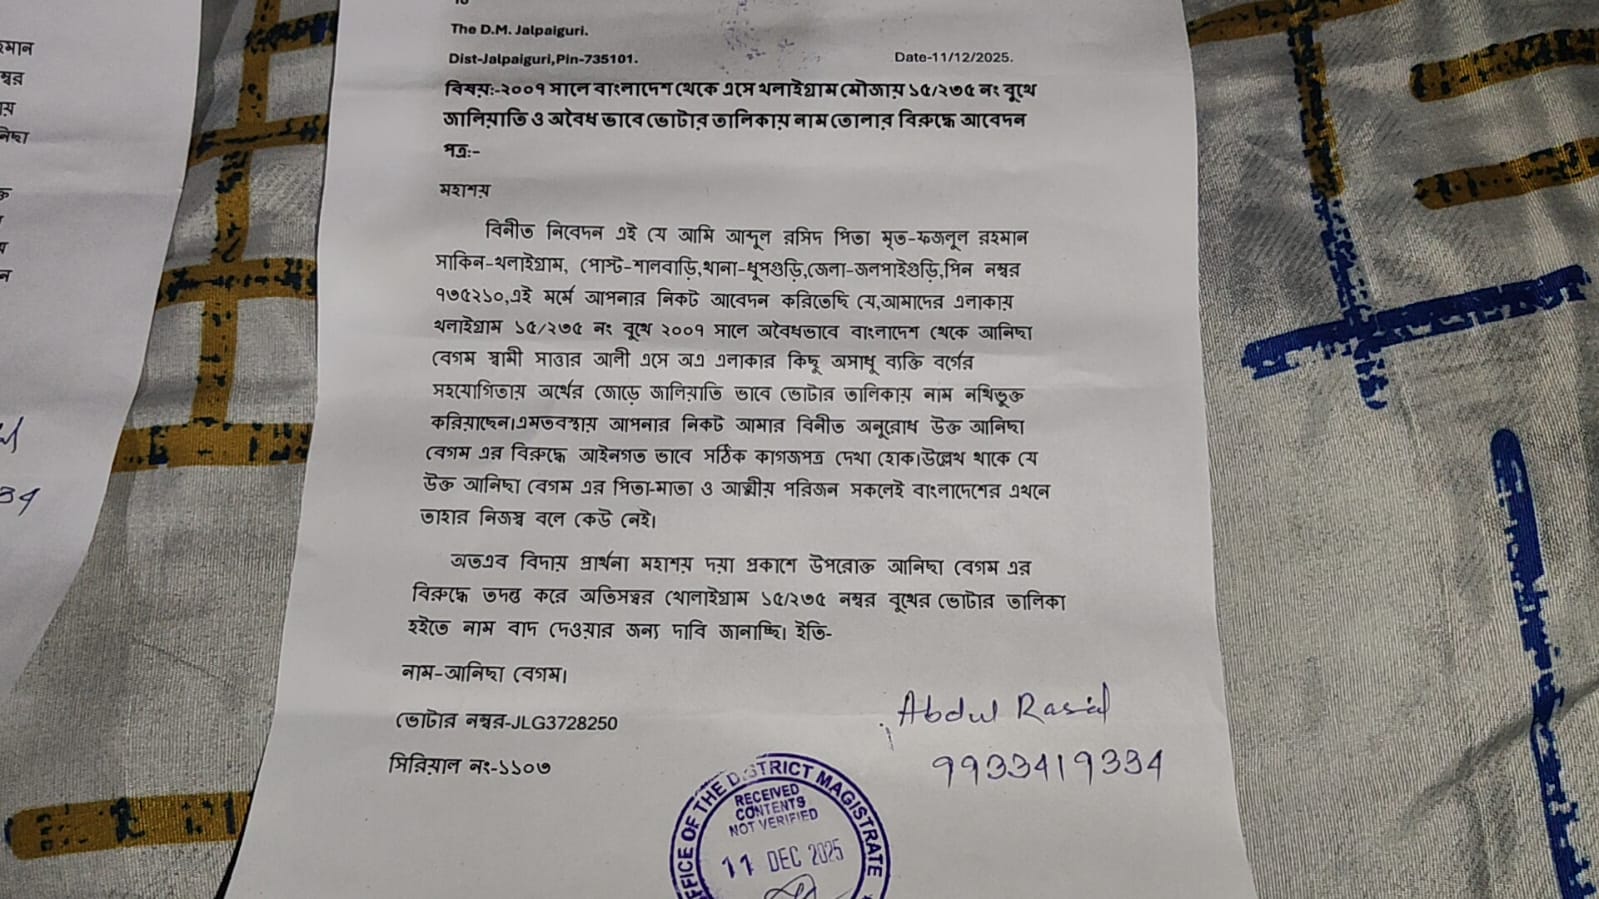 The D.M. Jalpaiguri.
Dist-Jalpaiguri,Pin-735101.
Date-11/12/2025.
বিষয়:-২০০৭ সালে বাংলাদেশ থেকে এসে থলাইগ্রাম মৌজায় ১৫/২৩৫ নং বুথে
জালিয়াতি ও অবৈধ ভাবে ভোটার তালিকায় নাম তোলার বিরুদ্ধে আবেদন
পত্র:-
মহাশয়
বিনীত নিবেদন এই যে আমি আব্দুল রসিদ পিতা মৃত-ফজলুল রহমান
সাকিন-থলাইগ্রাম, পোস্ট-শালবাড়ি,থানা-ধুপগুড়ি,জেলা-জলপাইগুড়ি,পিন নম্বর
৭৩৫২১০,এই মর্মে আপনার নিকট আবেদন করিতেছি যে,আমাদের এলাকায়
থলাইগ্রাম ১৫/২৩৫ নং বুথে ২০০৭ সালে অবৈধভাবে বাংলাদেশ থেকে আনিছা
বেগম স্বামী সাত্তার আলী এসে অত্র এলাকার কিছু অসাধু ব্যক্তি বর্গের
সহযোগিতায় অর্থের জোড়ে জালিয়াতি ভাবে ভোটার তালিকায় নাম নথিভুক্ত
করিয়াছেন।এমতবস্থায় আপনার নিকট আমার বিনীত অনুরোধ উক্ত আনিছা
বেগম এর বিরুদ্ধে আইনগত ভাবে সঠিক কাগজপত্র দেখা হোক।উল্লেখ থাকে যে
উক্ত আনিছা বেগম এর পিতা-মাতা ও আত্মীয় পরিজন সকলেই বাংলাদেশের এখনে
তাহার নিজস্ব বলে কেউ নেই।
অতএব বিদায় প্রার্থনা মহাশয় দয়া প্রকাশে উপরোক্ত আনিছা বেগম এর
বিরুদ্ধে তদন্ত করে অতিসত্বর খোলাইগ্রাম ১৫/২৩৫ নম্বর বুথের ভোটার তালিকা
হইতে নাম বাদ দেওয়ার জন্য দাবি জানাচ্ছি। ইতি-
নাম-আনিছা বেগম।
ভোটার নম্বর-JLG3728250
সিরিয়াল নং-১১০৩
Abdul Rasid
9933419334
OFFICE OF THE DISTRICT MAGISTRATE
RECEIVED
CONTENTS
NOT VERIFIED
11 DEC 2025